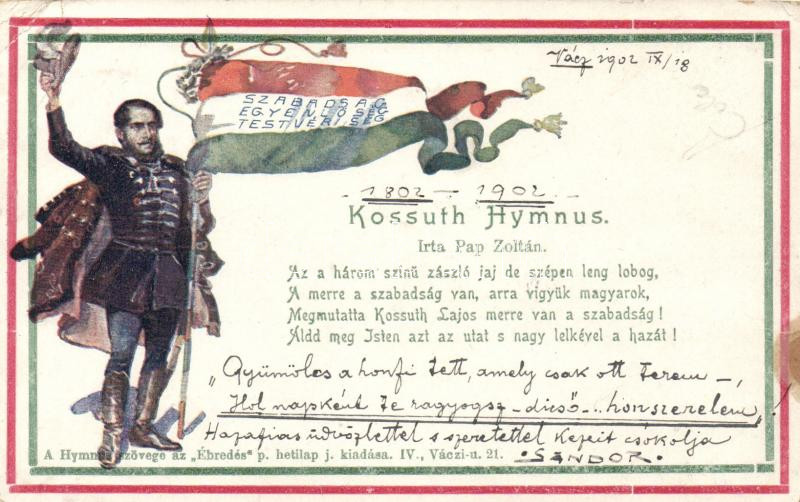 Vácz 1902 IX/18
SZABADSÁG
EGYENLŐSÉG
TESTVÉRISÉG
1802 – 1902
Kossuth Hymnus.
Irta Pap Zoltán.
Az a három szinű zászló jaj de szépen leng lobog,
A merre a szabadság van, arra vigyük magyarok,
Megmutatta Kossuth Lajos merre van a szabadság!
Áldd meg Isten azt az utat s nagy lelkével a hazát!
„Gyümölcs a honfi tett, amely csak ott terem –,
Hol napként te ragyogsz – dicső... honszerelem"!
Hazafias üdvözlettel s szeretettel kezeit csókolja
SÁNDOR.
A Hymnus szövege az „Ébredés" p. hetilap j. kiadása. IV., Váczi-u. 21.